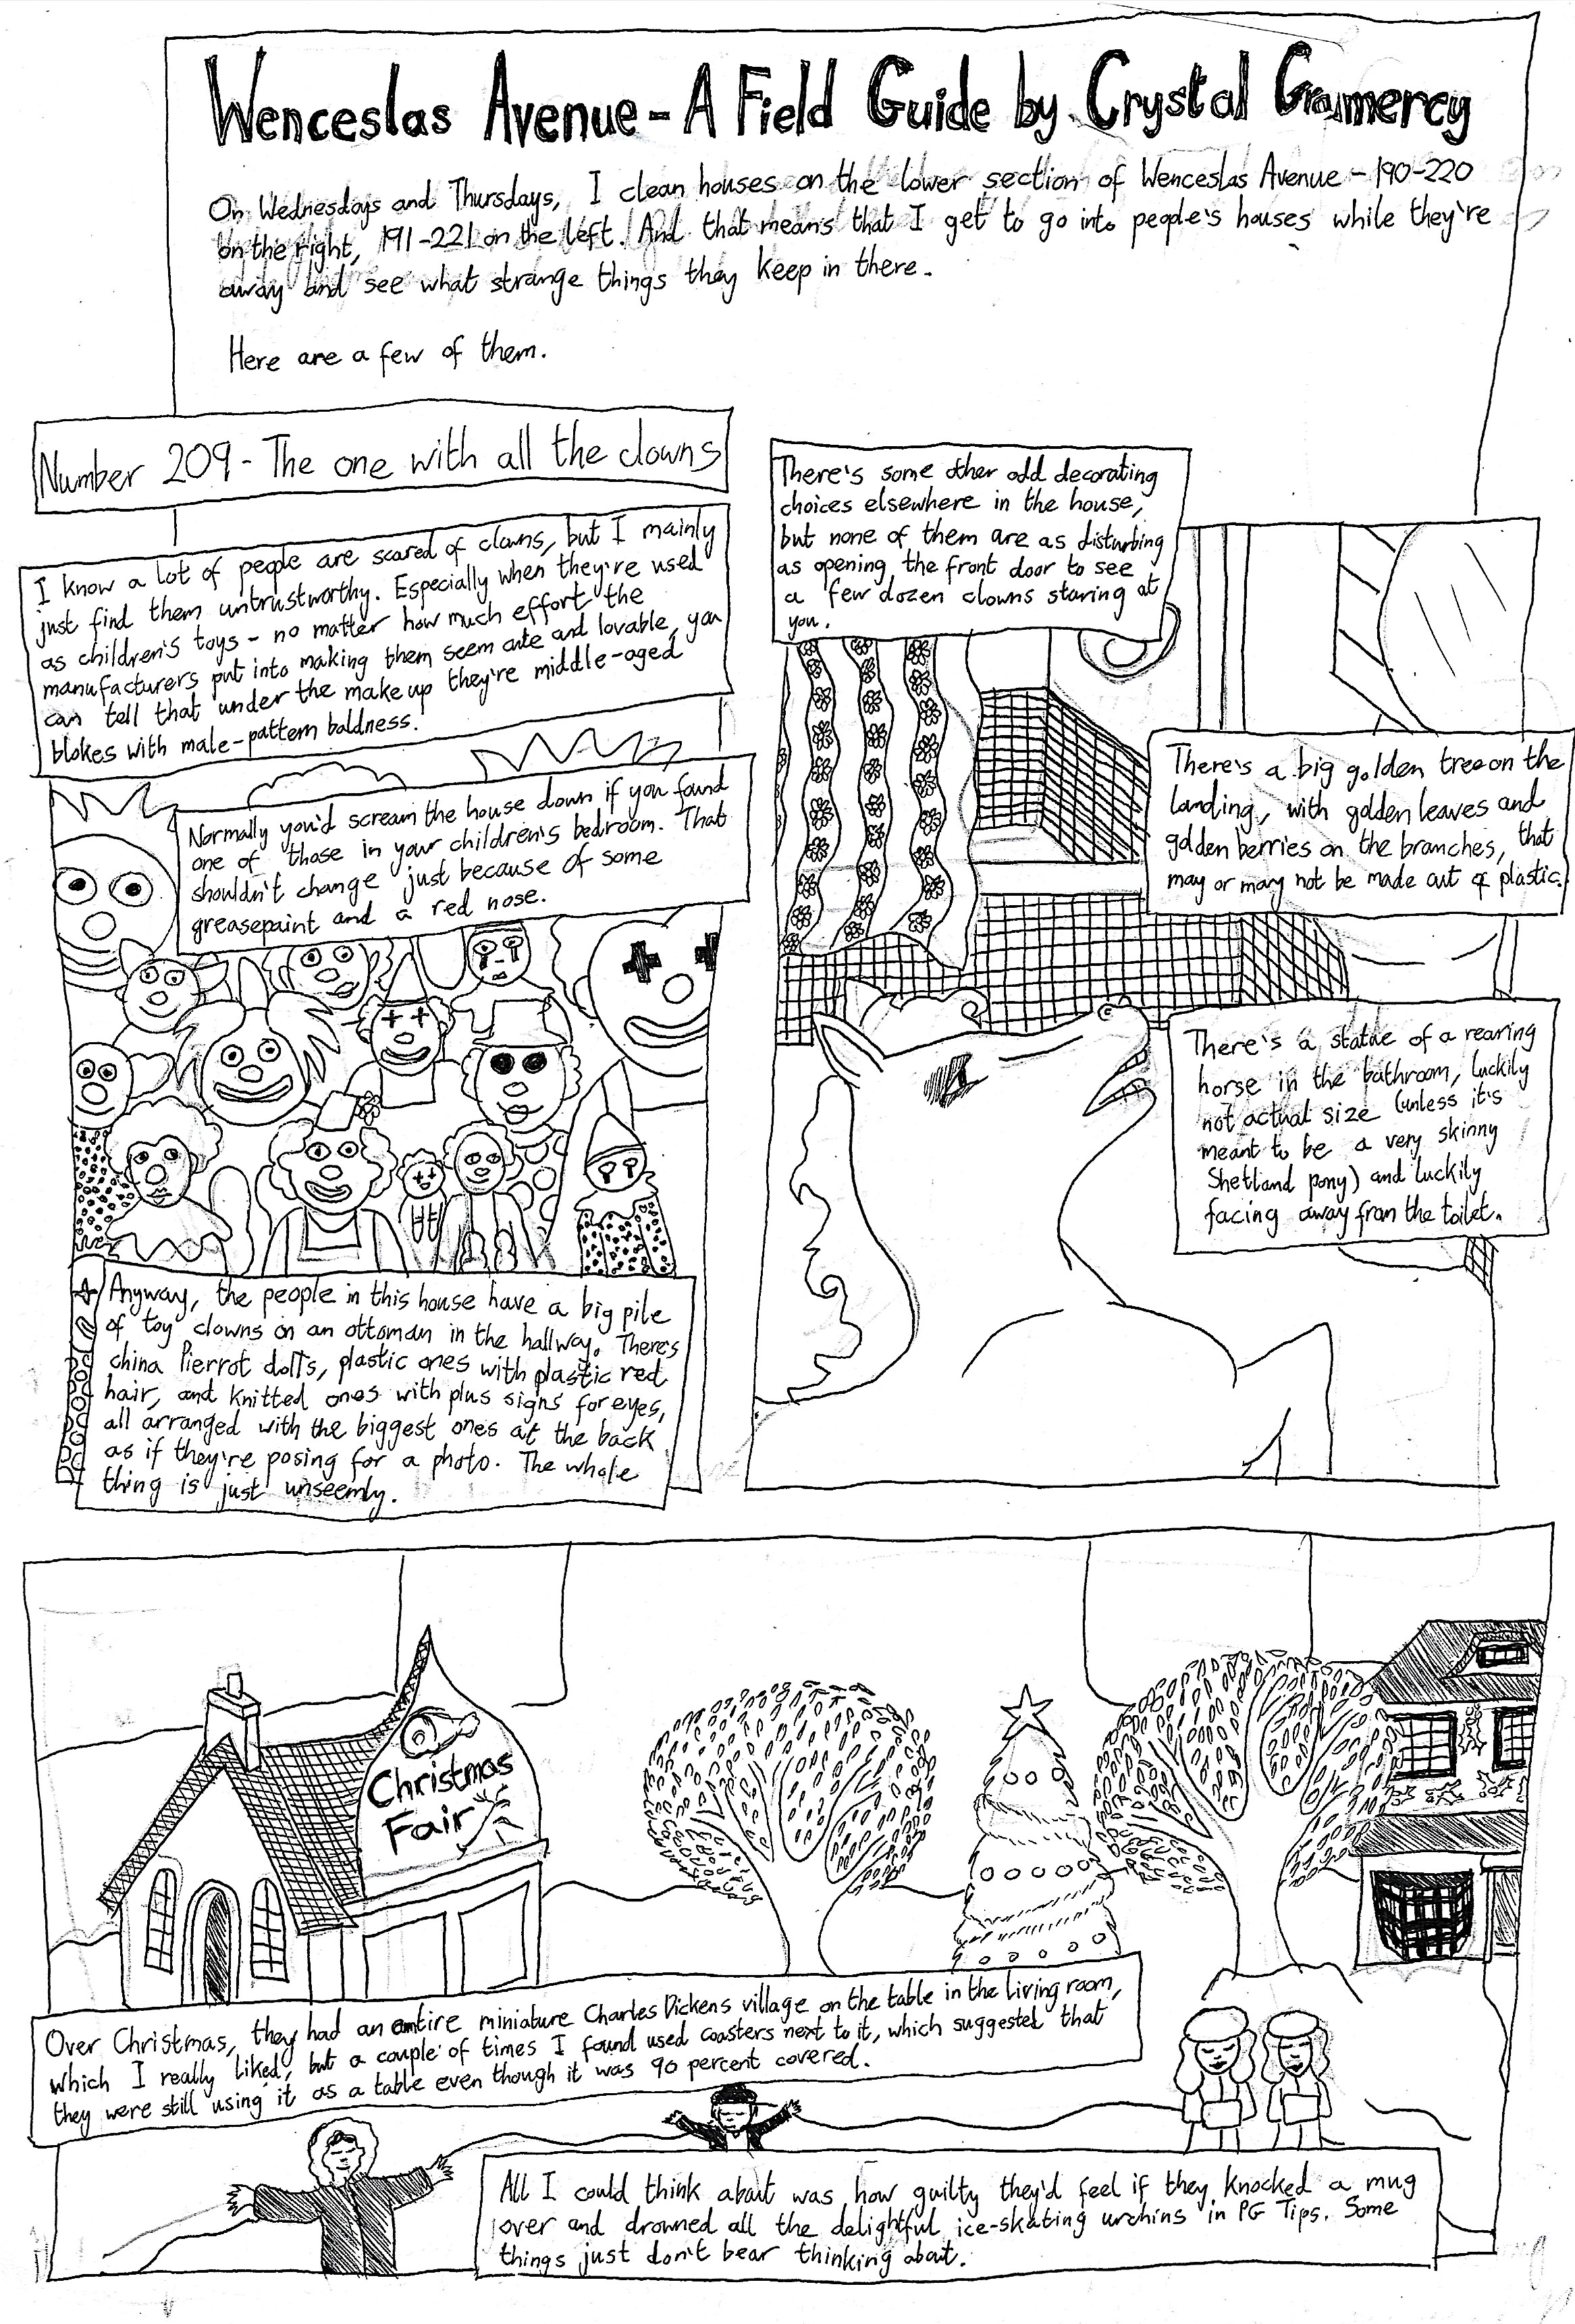 Wenceslas Avenue - A Field Guide by Crystal Gramercy
On Wednesdays and Thursdays, I clean houses on the lower section of Wenceslas Avenue - 190-220
on the right, 191-221 on the left. And that means that I get to go into people's houses while they're
away and see what strange things they keep in there.
Here are a few of them.
Number 209 - The one with all the clowns
I know a lot of people are scared of clowns, but I mainly
just find them untrustworthy. Especially when they're used
as children's toys - no matter how much effort the
manufacturers put into making them seem cute and lovable, you
can tell that under the makeup they're middle-aged
blokes with male-pattern baldness.
Normally you'd scream the house down if you found
one of those in your children's bedroom. That
shouldn't change just because of some
greasepaint and a red nose.
Anyway, the people in this house have a big pile
of toy clowns on an ottoman in the hallway. There's
china Pierrot dolls, plastic ones with plastic red
hair, and knitted ones with plus signs for eyes,
all arranged with the biggest ones at the back
as if they're posing for a photo. The whole
thing is just unseemly.
There's some other odd decorating
choices elsewhere in the house,
but none of them are as disturbing
as opening the front door to see
a few dozen clowns staring at
you.
There's a big golden tree on the
landing, with golden leaves and
golden berries on the branches, that
may or may not be made out of plastic.
There's a statue of a rearing
horse in the bathroom, luckily
not actual size (unless it's
meant to be a very skinny
Shetland pony) and luckily
facing away from the toilet.
Christmas
Fair
Over Christmas, they had an entire miniature Charles Dickens village on the table in the living room,
which I really liked, but a couple of times I found used coasters next to it, which suggested that
they were still using it as a table even though it was 90 percent covered.
All I could think about was how guilty they'd feel if they knocked a mug
over and drowned all the delightful ice-skating urchins in PG Tips. Some
things just don't bear thinking about.